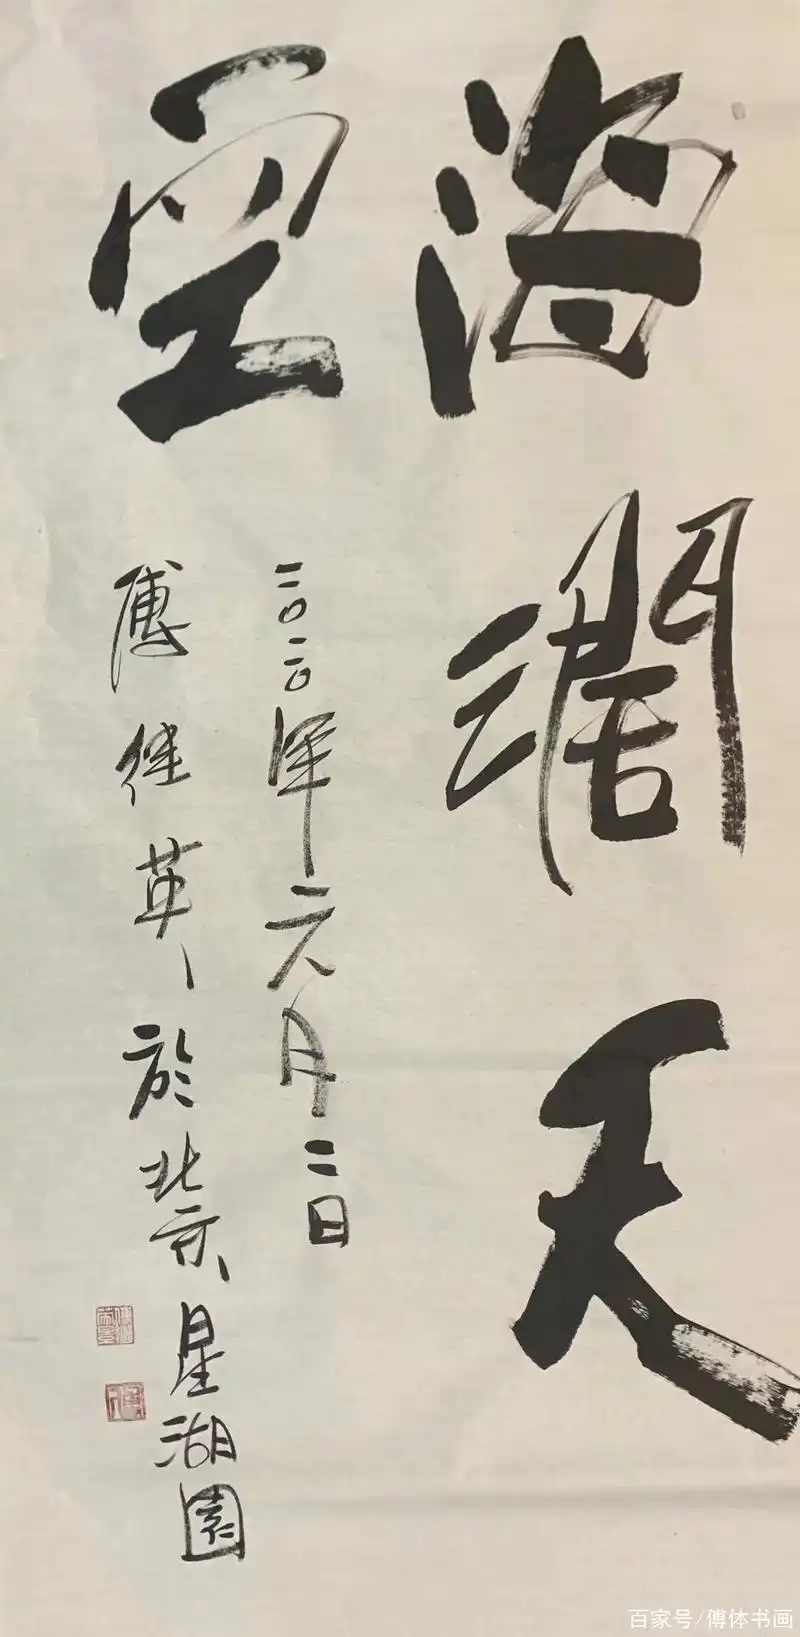 海阔天
空
二〇二〇年元月二日
傅继英於北京星湖园
百家号/傅体书画